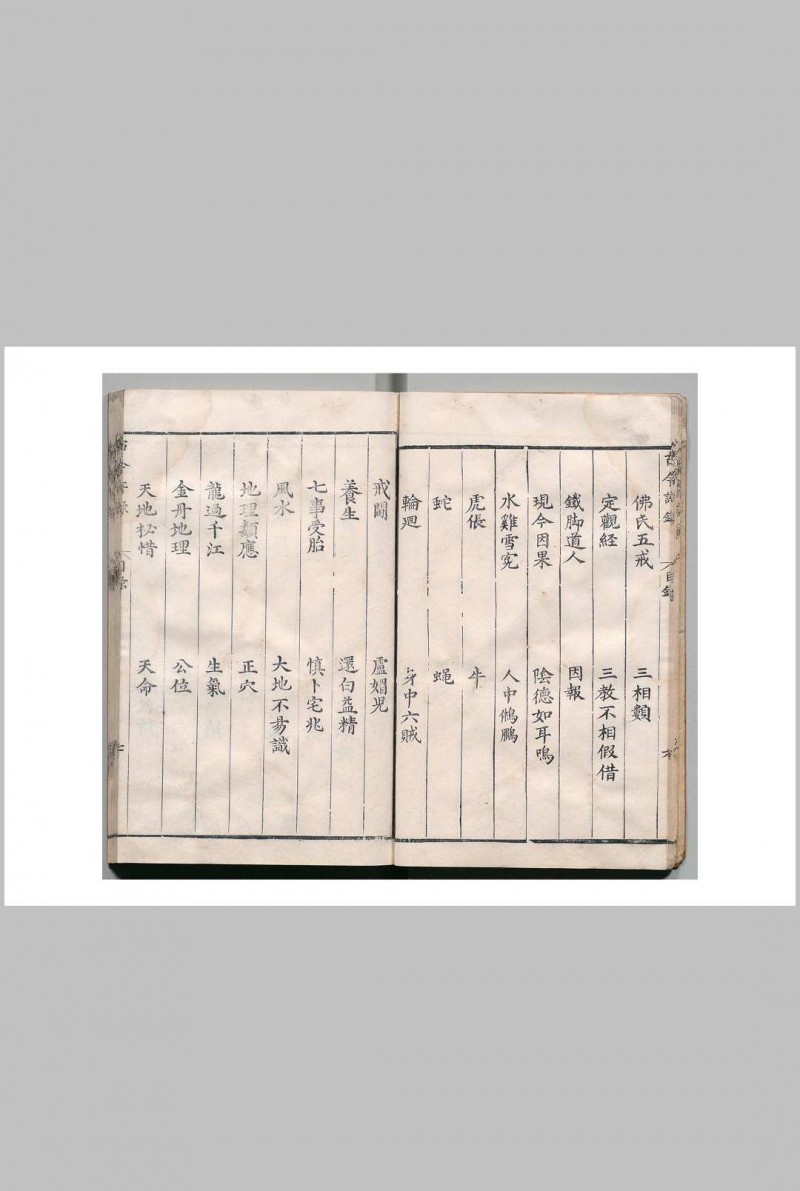 佛氏五戒 三相類
定觀經 三教不相假借
鐵脚道人 因報
現今因果 陰德如耳鳴
水雞雪寃 人中鵂鶹
虎倀 牛
蛇 蝇
輪廻 身中六賊
戒鬪 盧媚児
養生 還白益精
七事受胎 慎卜宅兆
風水 大地不易識
地理類應 正穴
龍過千江 生氣
金丹地理 公位
天地秘惜 天命